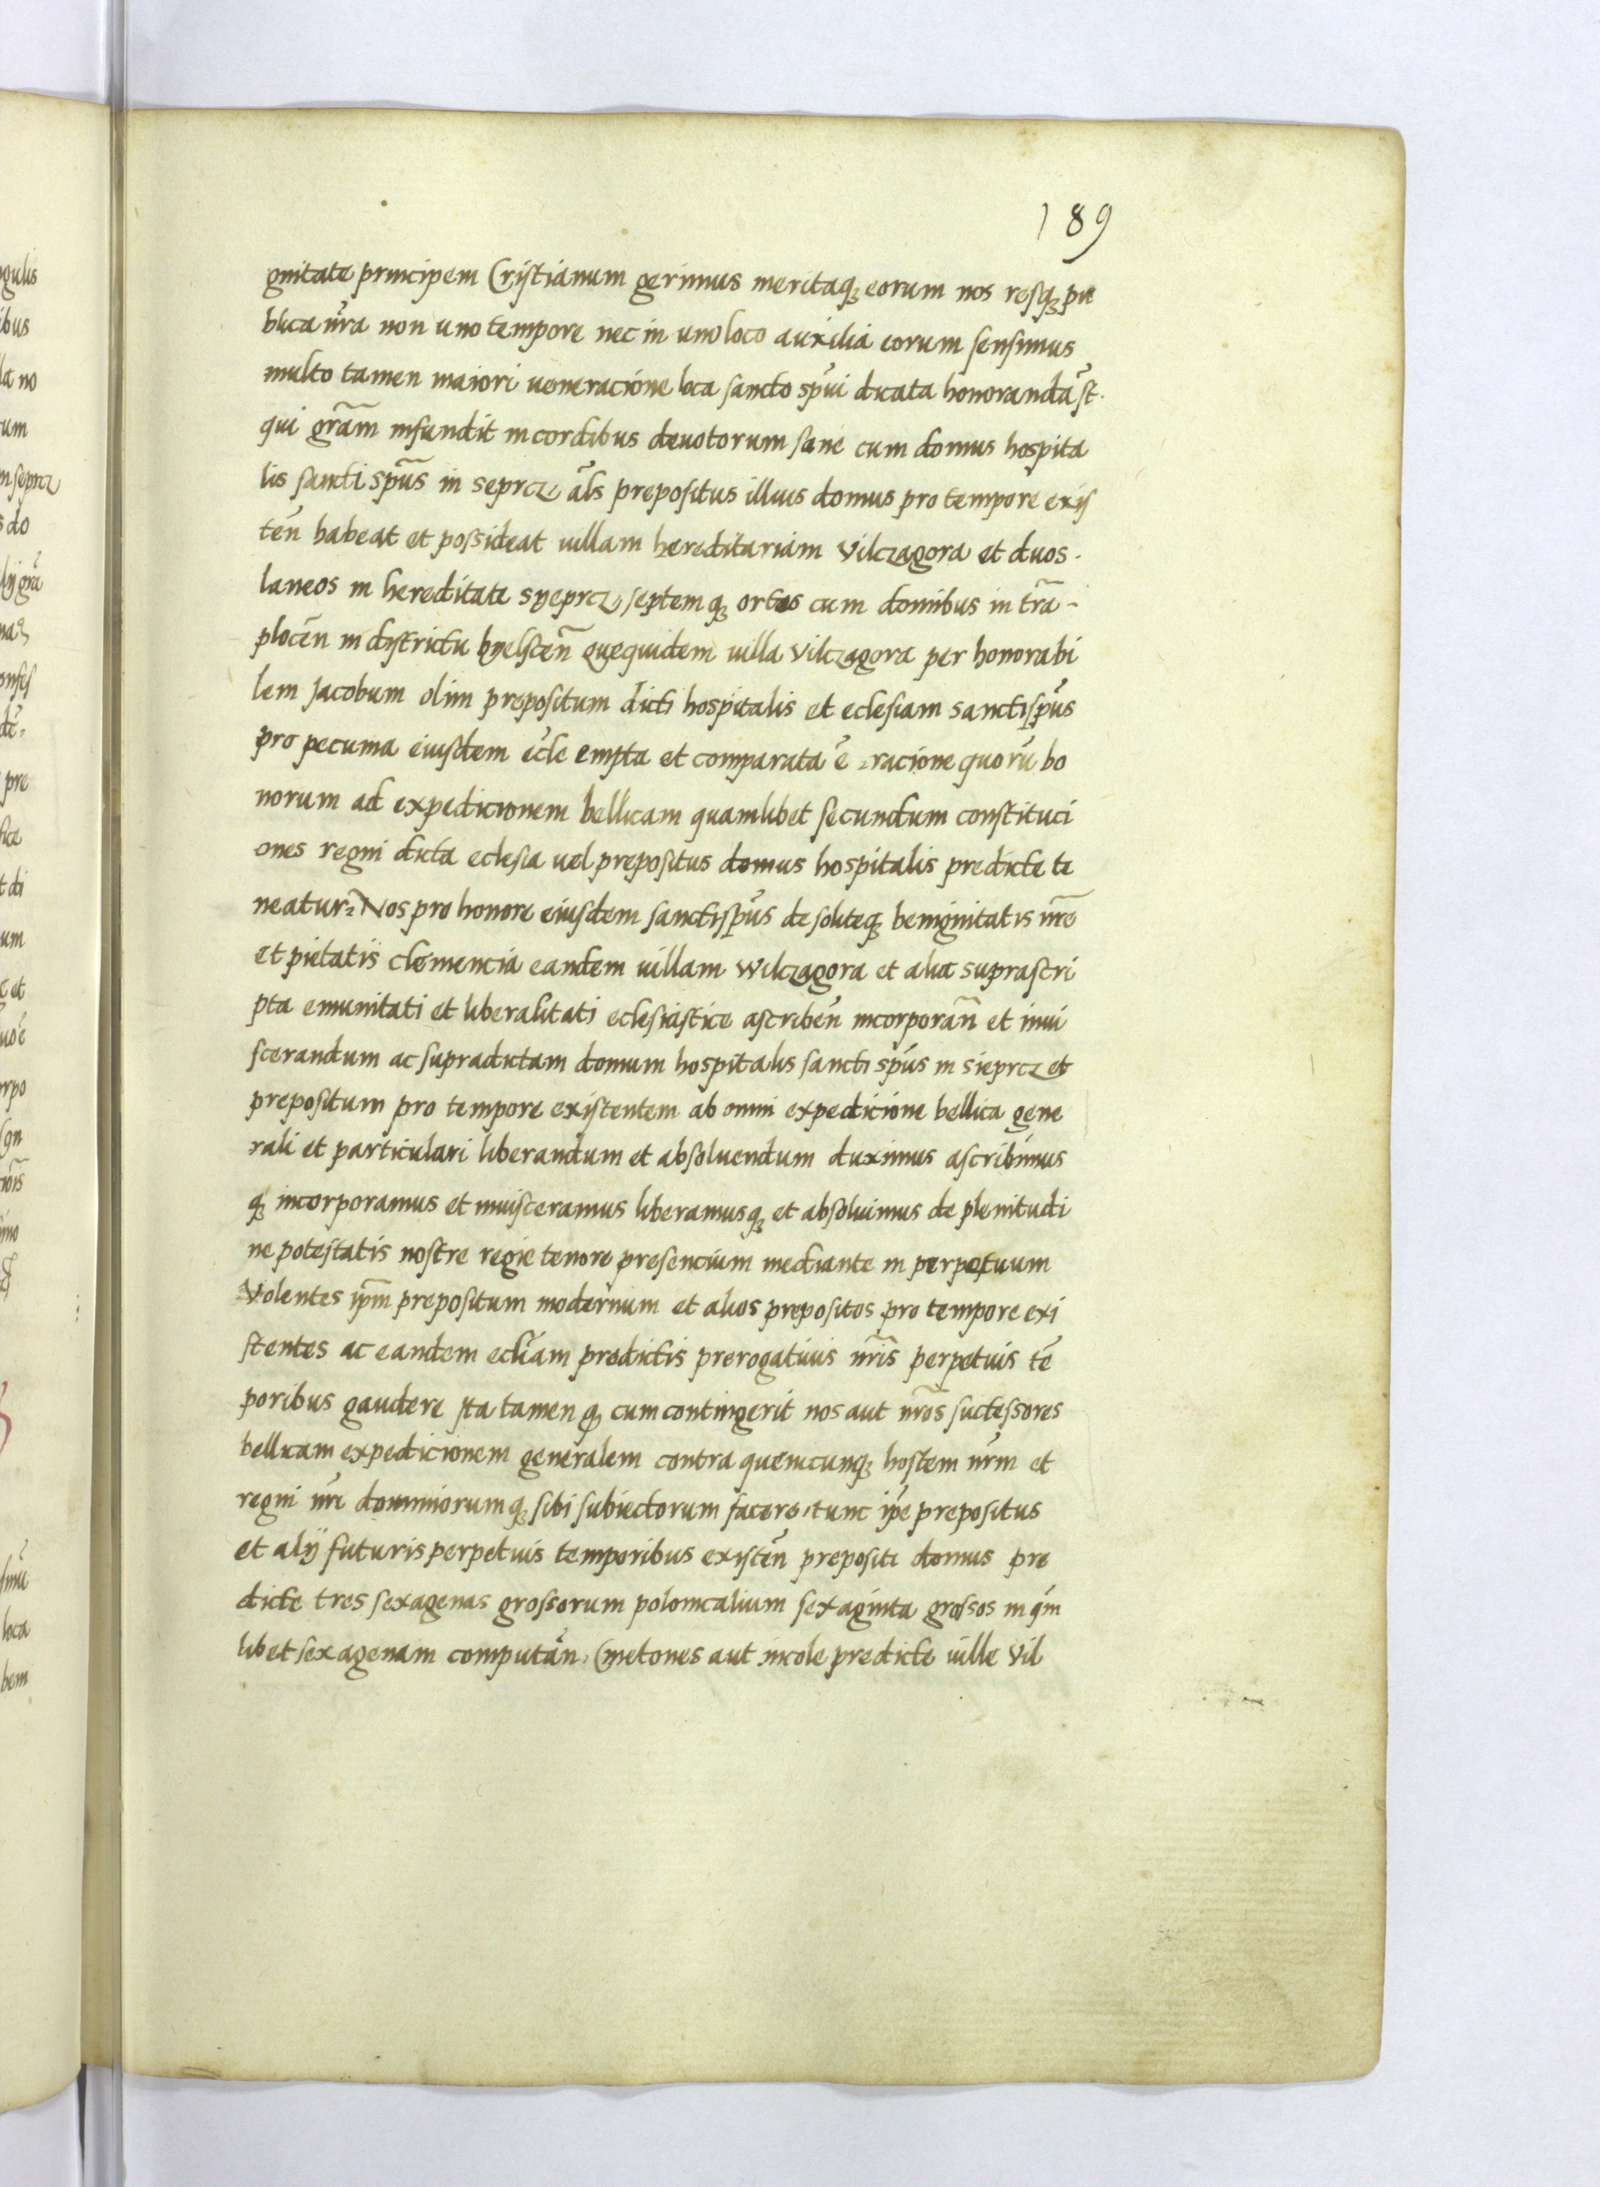 189
gnitate principem Cristianum gerimus meritaq; eorum nos resq; pu
blica nr̃a non uno tempore nec in uno loco auxilia eorum sensimus
multo tamen maiori ueneracione loca sancto spũi dicata honoranda st̃.
qui grãm infundit in cordibus deuotorum sane cum domus hospita
lis sancti spũs in seprcz als̃ prepositus illius domus pro tempore exis
teñ habeat et possideat uillam hereditariam Vilczagora et duos.
laneos in hereditate syeprcz septemq; ortos cum domibus in tr̃a-
ploceñ in districtu byelsceñ quequidem uilla Vilczagora per honorabi
lem Jacobum olim prepositum dicti hospitalis et eclesiam sancti spũs
pro pecunia eiusdem ecl̃e empta et comparata ẽ racione quorũ bo
norum ad expedicionem bellicam quamlibet secundum constituci
ones regni dicta eclesia uel prepositus domus hospitalis predicte te
neatur Nos pro honore eiusdem sancti spũs de soliteq; benignitatis nr̃e
et pietatis clemencia eandem uillam Wilczagora et alia suprascri
pta emunitati et liberalitati eclesiastice ascribeñ incorporañ et inui
scerandum ac supradictam domum hospitalis sancti spũs in sieprcz et
prepositum pro tempore existentem ab omni expedicione bellica gene
rali et particulari liberandum et absoluendum duximus ascribimus
q; incorporamus et inuisceramus liberamusq; et absoluimus de plenitudi
ne potestatis nostre regie tenore presencium mediante in perpetuum
Volentes ip̃m prepositum modernum et alios prepositos pro tempore exi
stentes ac eandem eccl̃iam predictis prerogatiuis nr̃is perpetuis tẽ
poribus gaudere Ita tamen q; cum contingerit nos aut nr̃os successores
bellicam expedicionem generalem contra quemcunq; hostem nr̃m et
regni nr̃i dominiorumq; sibi subiectorum facere, tunc ip̃e prepositus
et alij futuris perpetuis temporibus existeñ prepositi domus pre
dicte tres sexagenas grossorum polonicalium sexaginta grossos in qm̃
libet sexagenam computañ. Cmetones aut incole predicte uille Vil